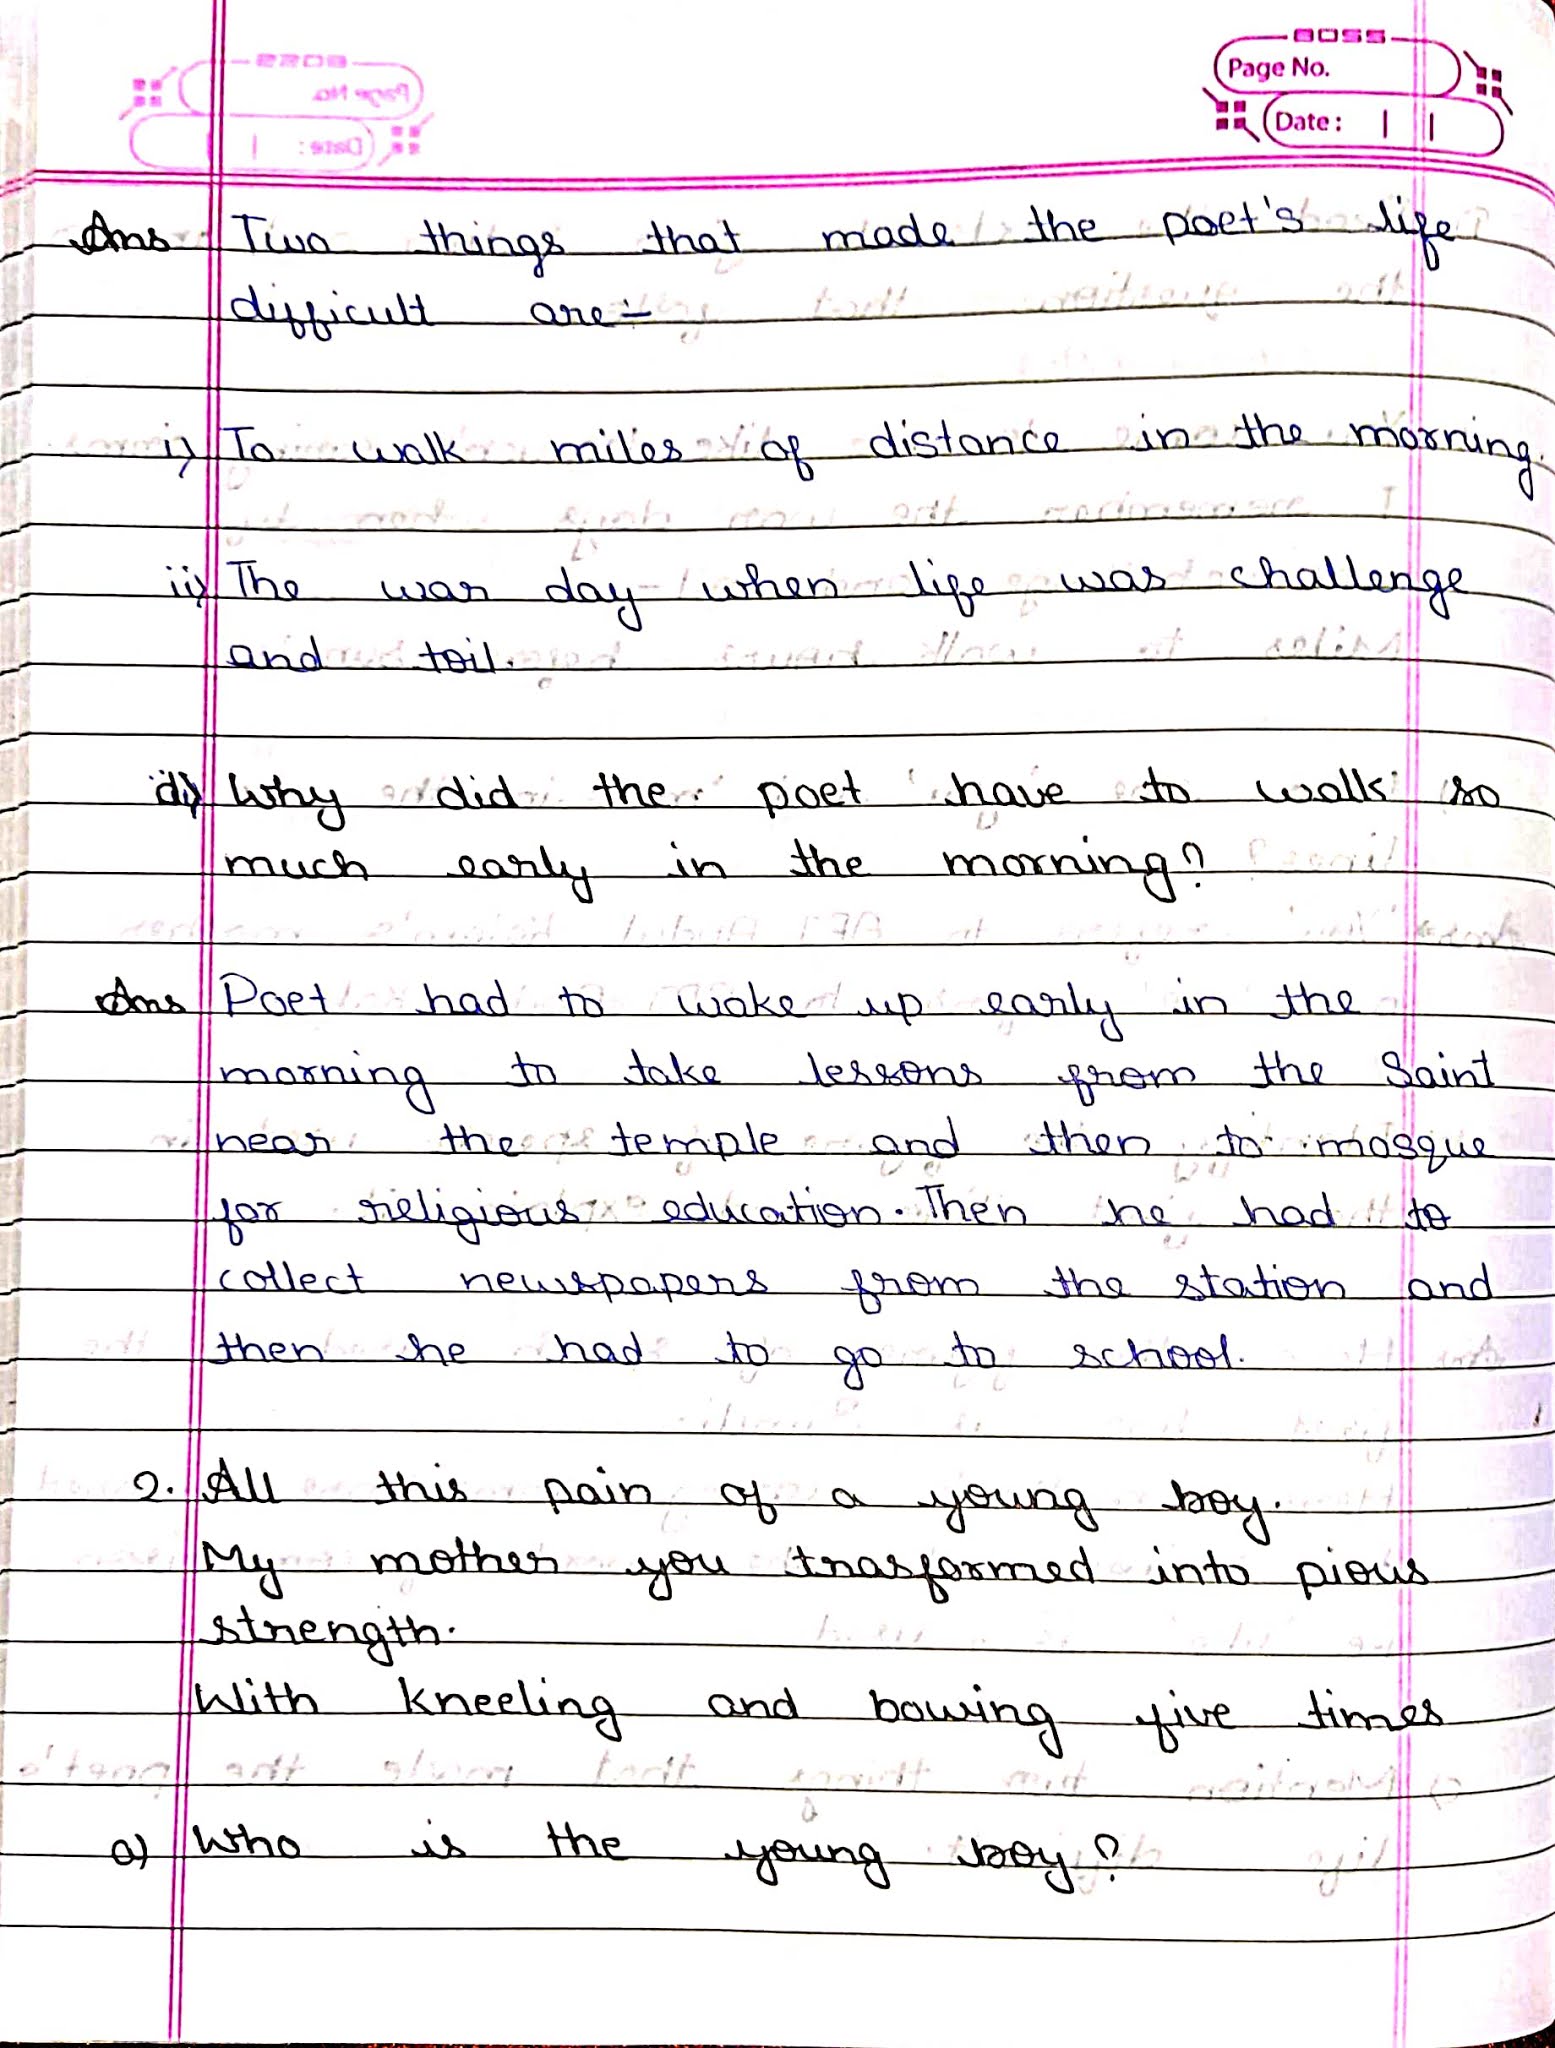 BOSS
Page No.
Date:
Ans Two things that made the poet's life
difficult are:-
i) To walk miles of distance in the morning.
ii) The war day when life was challenge
and toil.
d) Why did the poet have to walk so
much early in the morning?
Ans Poet had to wake up early in the
morning to take lessons from the Saint
near the temple and then to mosque
for religious education. Then he had to
collect newspapers from the station and
then he had to go to school.
2. All this pain of a young boy.
My mother you trasformed into pious
strength.
With kneeling and bowing five times
a) Who is the young boy?